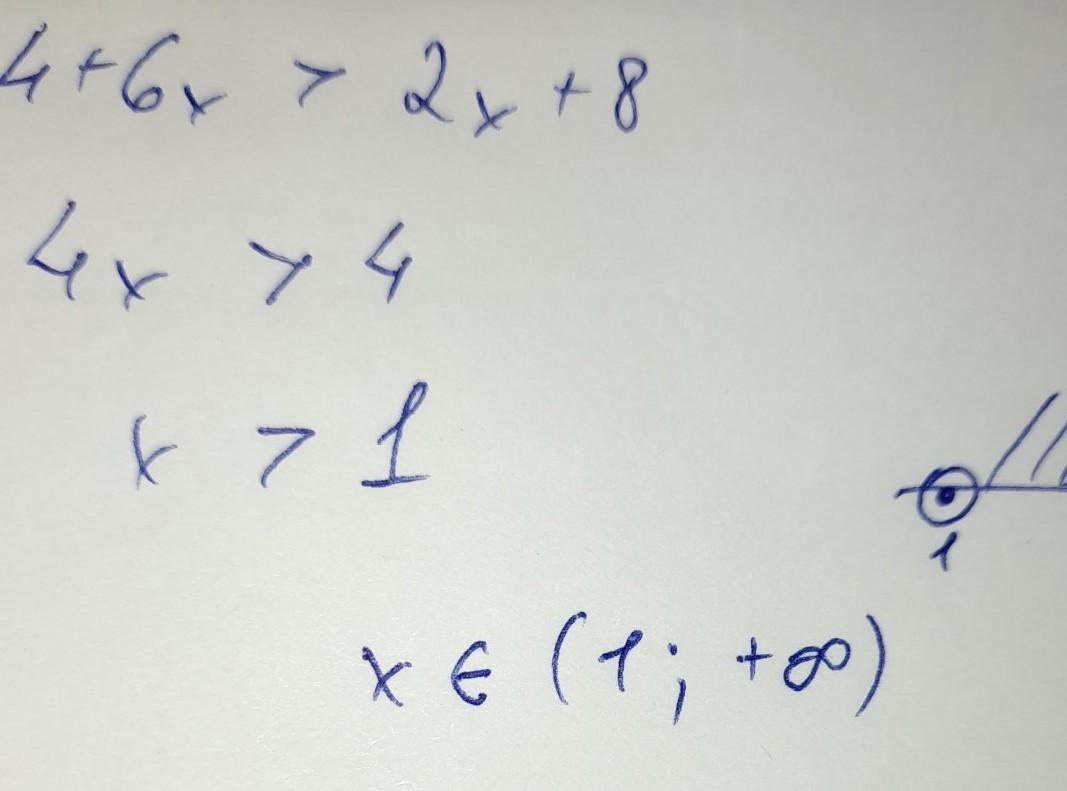 4+6x > 2x+8
4x > 4
x > 1
1
x ∈ (1; +∞)